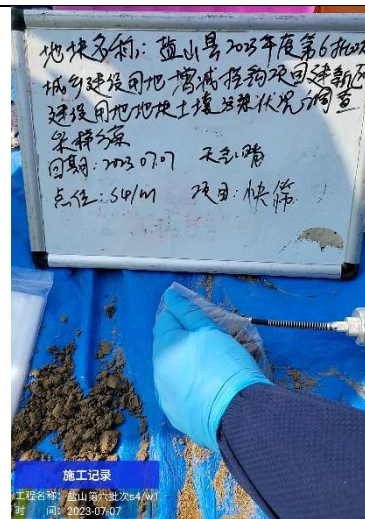 地块名称: 盐山县2023年度第6批次
城乡建设用地增减挂钩项目建新区
建设用地地块土壤污染状况调查
采样方案
日期: 2023.07.07 天气:晴
点位: S4/1m 项目: 快筛
施工记录
工程名称: 盐山第六批次s4/w1
时 间: 2023-07-07